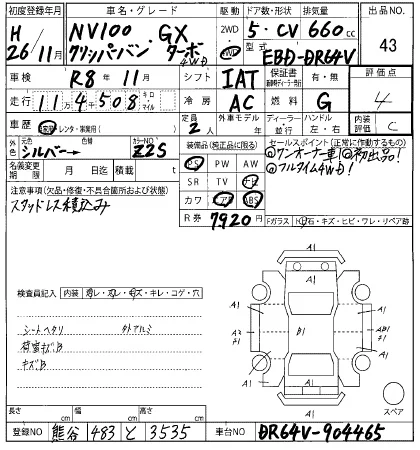 初度登録年月 車名・グレード 駆動 ドア数・形状 排気量 出品NO.
H 26/11月 NV100 GX 2WD 5・CV 660cc 43
クリッパーバン ターボ 4WD 4WD 型式 EBD-DR64V
車検 R8年11月 シフト IAT 保証書 有・無 評価点
走行 114508 キロ マイル 冷房 AC 燃料 G 4
車歴 自家用 レンタ・事業用( ) 定員 2人 外車モデル 年 ディーラー 並行 ハンドル 左・右 内装評価 C
外色 元色 シルバー 色替 カラーNO. Z2S 装備品(純正品に限る) セールスポイント(正常に作動するもの)
名義変更期限 月 日迄 積載 t PS PW AW ①ワンオーナー車!②初出品!
注意事項(欠品・修復・不具合箇所および状態) SR TV ナビ ③フルタイム4WD!
スタッドレス積込み カワ エアB ABS
R券 7920円 Fガラス トビ石・キズ・ヒビ・ワレ・リペア跡
検査員記入 内装 ヨゴレ・スレ・キズ・キレ・コゲ・穴
A1
A1 A1
シートヘタリ 外アルミ
荷室キズB
キズB
A1
B1
A1
A1
A1
スペア
長さ cm 幅 cm 高さ cm
登録NO 熊谷 483 と 3535 車台NO DR64V-904465